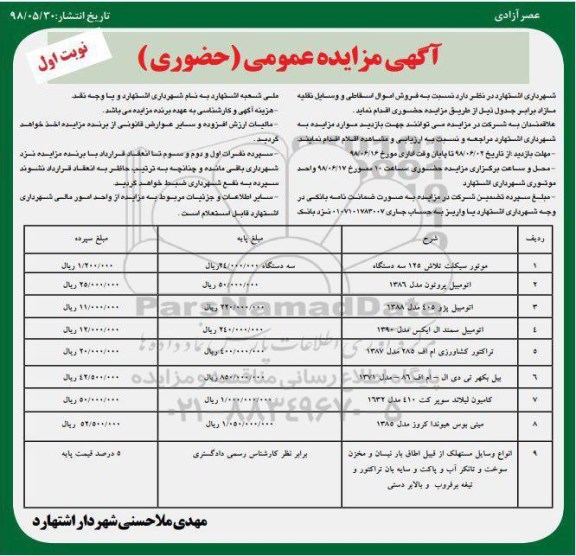 عصر آزادی
تاریخ انتشار: ۹۸/۰۵/۳۰
نوبت اول
آگهی مزایده عمومی (حضوری)
شهرداری اشتهارد در نظر دارد نسبت به فروش اموال اسقاطی و وسایل نقلیه
مازاد برابر جدول ذیل از طریق مزایده حضوری اقدام نماید.
علاقمندان به شرکت در مزایده می توانند جهت بازدید موارد مزایده به
شهرداری اشتهارد مراجعه و نسبت به ارزیابی و مشاهده اقلام اقدام نمائند.
- مهلت بازدید از تاریخ ۹۸/۰۶/۰۲ تا پایان وقت اداری مورخ ۹۸/۰۶/۱۶
- محل و ساعت برگزاری مزایده حضوری ساعت ۱۰ مورخ ۹۸/۰۶/۱۷ واحد
موتوری شهرداری اشتهارد
- مبلغ سپرده تضمین شرکت در مزایده به صورت ضمانت نامه بانکی در
وجه شهرداری اشتهارد یا واریز به حساب جاری ۰۱۰۷۱۰۱۷۸۳۰۰۷ نزد بانک
ملی شعبه اشتهارد به نام شهرداری اشتهارد و یا وجه نقد.
- هزینه آگهی و کارشناسی به عهده برنده مزایده می باشد.
- مالیات ارزش افزوده و سایر عوارض قانونی از برنده مزایده اخذ خواهد
گردید.
- سپرده نفرات اول و دوم و سوم تا انعقاد قرارداد با برنده مزایده نزد
شهرداری باقی مانده و چنانچه به ترتیب حاضر به انعقاد قرارداد نشوند
سپرده به نفع شهرداری ضبط خواهد گردید.
- سایر اطلاعات و جزئیات مربوط به مزایده از واحد امور مالی شهرداری
اشتهارد قابل استعلام است.
ردیف شرح مبلغ پایه مبلغ سپرده
۱ موتور سیکلت تلاش ۱۲۵ سه دستگاه سه دستگاه ۲۴/۰۰۰/۰۰۰ ریال ۱/۲۰۰/۰۰۰ ریال
۲ اتومبیل پروتون مدل ۱۳۸۶ ۵۰/۰۰۰/۰۰۰ ریال ۲۵/۰۰۰/۰۰۰ ریال
۳ اتومبیل پژو ۴۰۵ مدل ۱۳۸۸ ۲۲۰/۰۰۰/۰۰۰ ریال ۱۱/۰۰۰/۰۰۰ ریال
۴ اتومبیل سمند ال ایکس مدل ۱۳۹۰ ۲۴۰/۰۰۰/۰۰۰ ریال ۱۲/۰۰۰/۰۰۰ ریال
۵ تراکتور کشاورزی ام اف ۲۸۵ مدل ۱۳۸۷ ۴۰۰/۰۰۰/۰۰۰ ریال ۲۰/۰۰۰/۰۰۰ ریال
۶ بیل بکهو تی دی ال – ام اف ۸۶ – مدل ۱۳۷۱ ۸۵۰/۰۰۰/۰۰۰ ریال ۴۲/۵۰۰/۰۰۰ ریال
۷ کامیون لیلاند سوپر کت ۴۱۰ مدل ۱۶۳۲ ۱/۰۰۰/۰۰۰/۰۰۰ ریال ۵۰/۰۰۰/۰۰۰ ریال
۸ مینی بوس هیوندا کروز مدل ۱۳۸۵ ۱/۰۵۰/۰۰۰/۰۰۰ ریال ۵۲/۵۰۰/۰۰۰ ریال
۹ انواع وسایل مستهلک از قبیل اطاق بار نیسان و مخزن برابر نظر کارشناس رسمی دادگستری ۵ درصد قیمت پایه
سوخت و تانکر آب و پاکت و سایه بان تراکتور و
تیغه برفروب و بالابر دستی
مهدی ملاحسنی شهردار اشتهارد
ParsNamadData
پایگاه اطلاع رسانی مناقصه و مزایده
۰۲۱-۸۸۳۴۹۶۷۰-۵